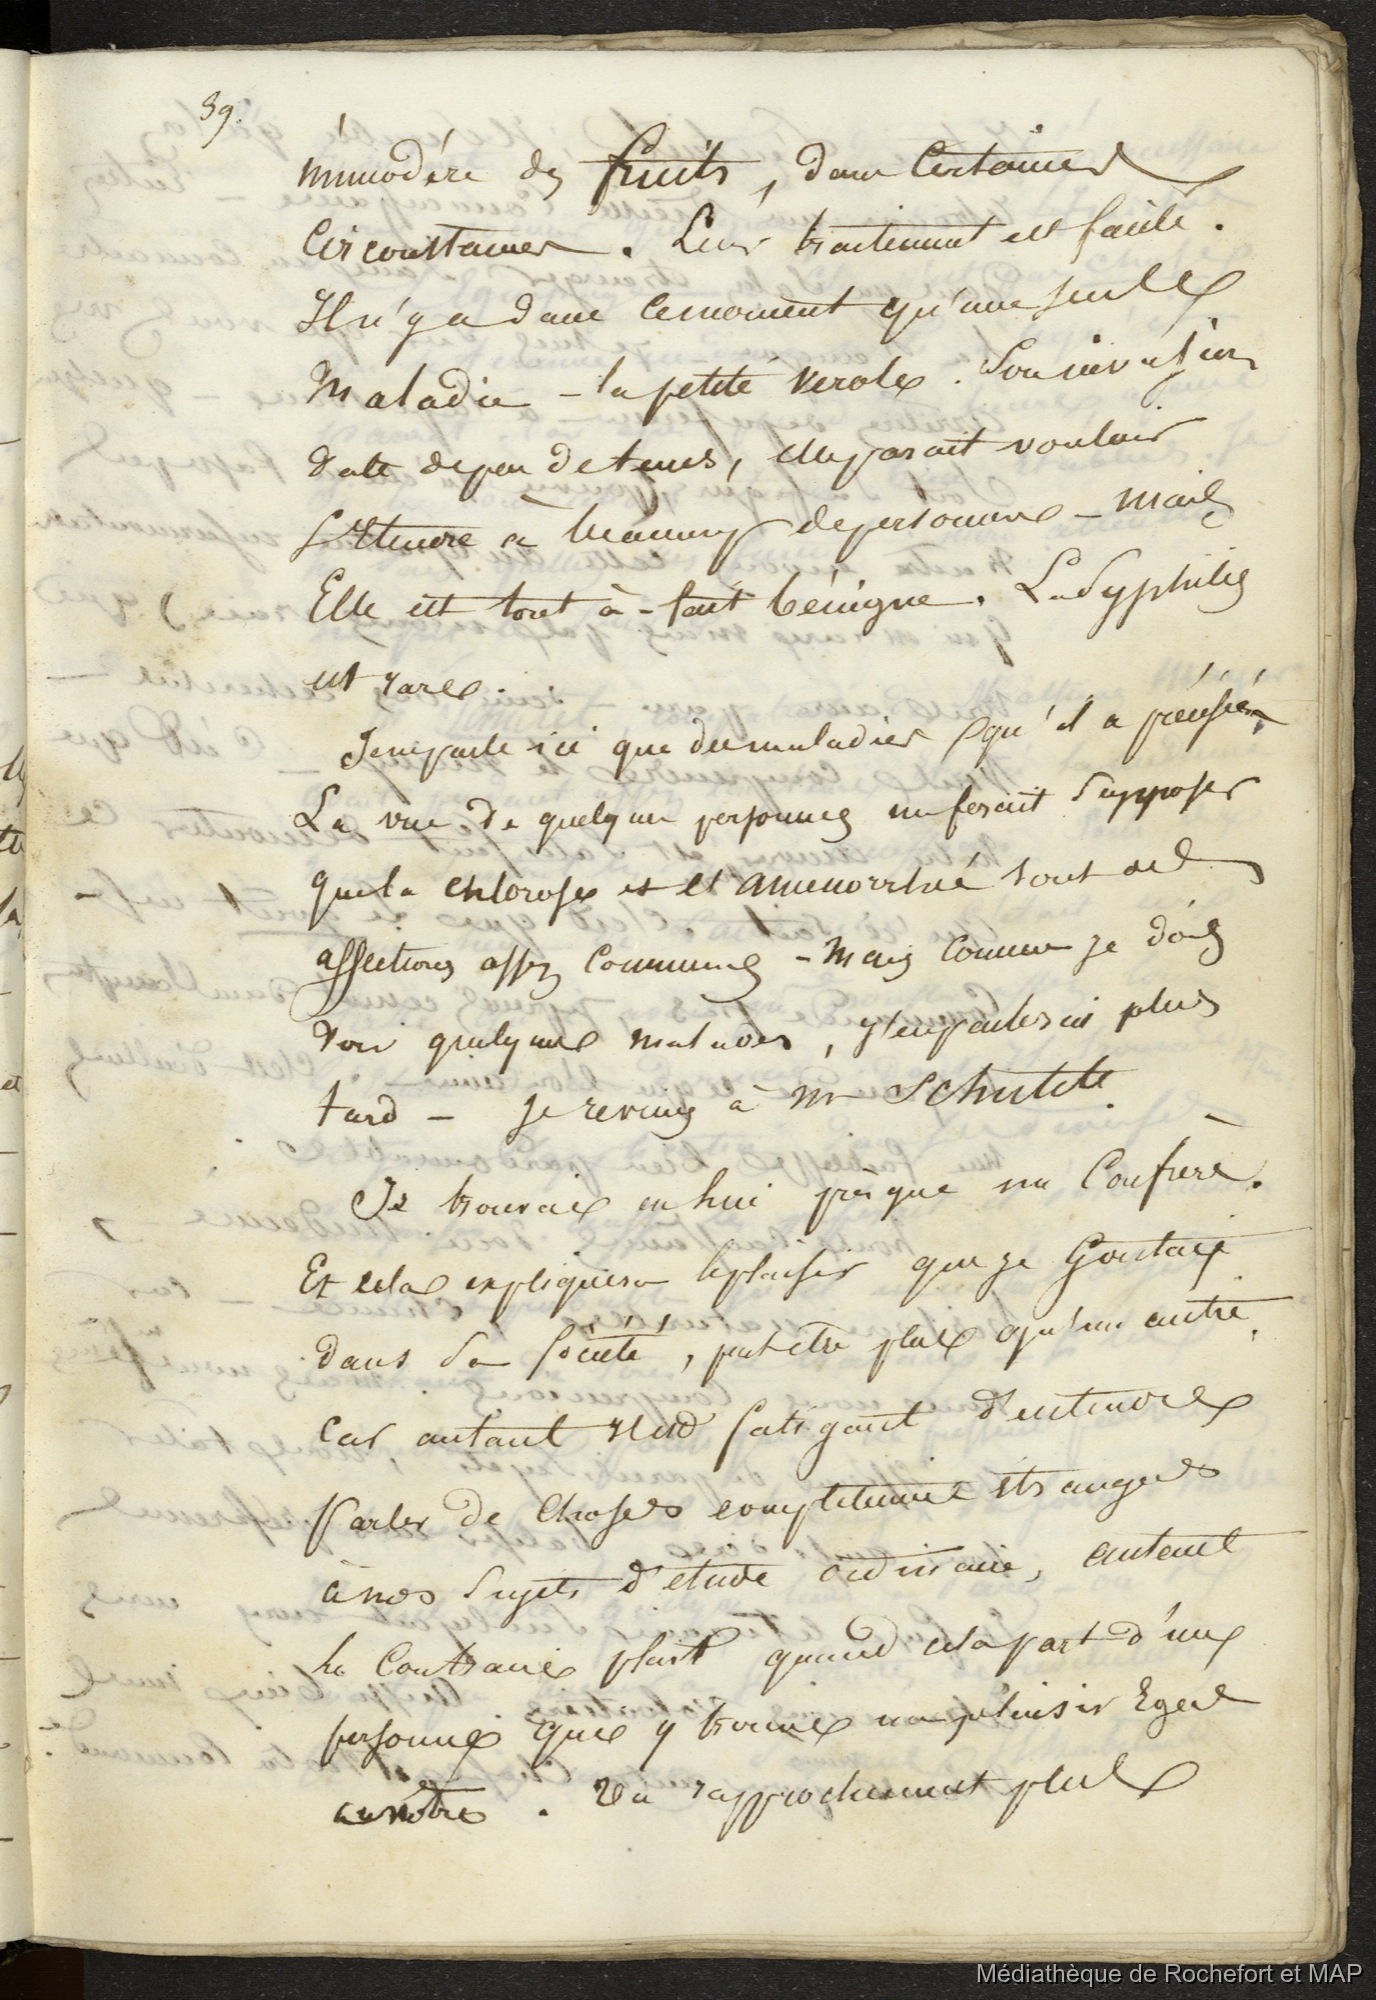 39.
immodéré des fruits, dans certaines
circonstances. Leur traitement est facile.
Il n'y a dans ce moment qu'une seule
maladie - la petite verole. Son invasion
date de peu de tems, elle parait vouloir
s'etendre a beaucoup de personnes - mais
Elle est tout à-fait bénigne. La Syphilis
est rare.
Je ne parle ici que des maladies qu'il a
La vue de quelques personnes me ferait supposer
que la chlorose et l'amenorrhé sont des
affections assez communes - mais comme je dois
voir quelques malades, j'en parlerai plus
tard - je reviens à Mr Schutete
Je trouvais en lui presque un Confrère.
Et cela expliquera le plaisir que je goutais
dans sa société, peut etre plus qu'un autre,
car autant il est fatigant d'entendre
parler de choses completement étrangeres
à nos sujets d'etude ordinaire, autant
le contraire plait quand cela part d'une
personne qui y trouve un plaisir Egal
au nôtre. Un rapprochement plus
Médiathèque de Rochefort et MAP